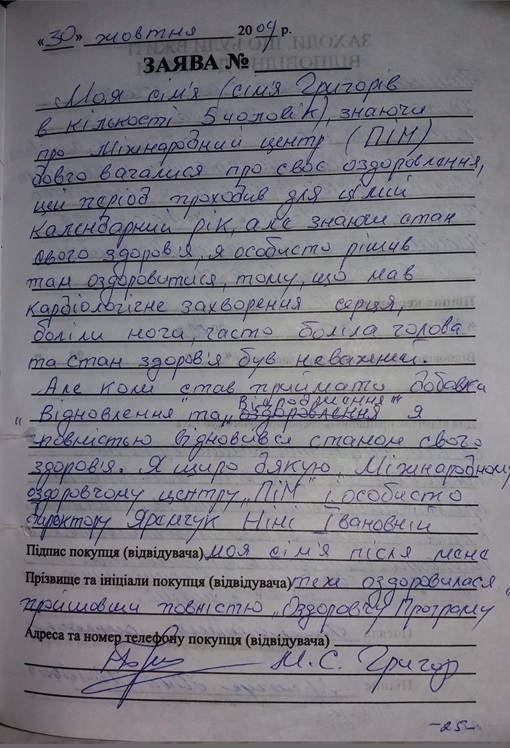 «30» жовтня 2009 р.
ЗАЯВА №
Моя сім'я (сім'я Григорів
в кількості 5 чоловік), знаючи
про Міжнародний центр (ПІМ)
довго вагалися про своє оздоровлення,
цей період проходив для цілий
календарний рік, але знаючи стан
свого здоров'я, я особисто рішив
там оздоровитися, тому, що мав
кардіологічне захворення серця,
боліли ноги, часто боліла голова
та стан здоров'я був неважний.
Але коли став приймати добавки
Відродження"
„Відновлення" та „оздоровлення я
повністью відновився станом свого
здоров'я. Я щиро дякую Міжнародному
оздоровчому центру „ПІМ" і особисто
директору Яремчук Ніні Івановній
Підпис покупця (відвідувача) моя сім'я після мене
Прізвище та ініціали покупця (відвідувача) теж оздоровилася
пройшовши повністью „Оздоровчу Програму"
Адреса та номер телефону покупця (відвідувача)
М. С. Григор
-25-